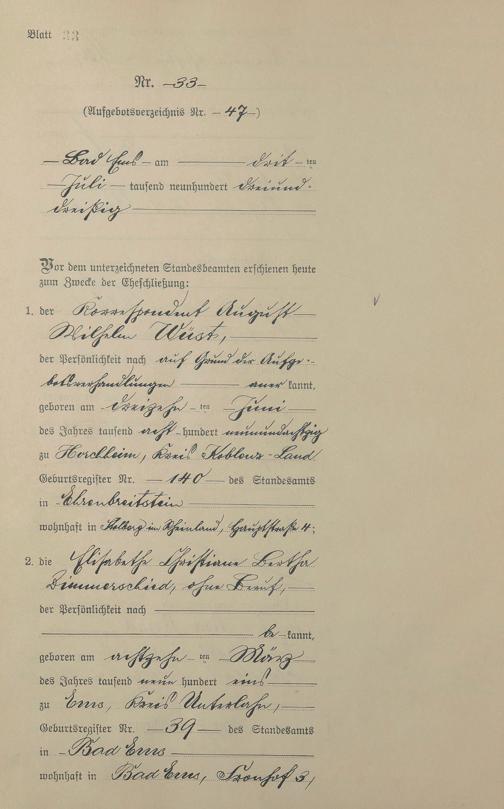 Blatt 33
Nr. -33-
(Aufgebotsverzeichnis Nr. -47-)
- Bad Ems - am drit - ten
- Juli - tausend neunhundert dreiund-
dreißig
Vor dem unterzeichneten Standesbeamten erschienen heute
zum Zwecke der Eheschließung:
1. der Korrespondent August
Wilhelm Wüst,
der Persönlichkeit nach auf Grund der Aufge-
botsverhandlungen aner kannt,
geboren am dreizehn - ten Juni
des Jahres tausend acht - hundert neunundachtzig
zu Horchheim, Kreis Koblenz-Land
Geburtsregister Nr. - 140 - des Standesamts
in Ehrenbreitstein
wohnhaft in Stolberg im Rheinland, Hauptstraße 4;
2. die Elisabethe Christiane Bertha
Zimmerschied, ohne Beruf,
der Persönlichkeit nach
be - kannt,
geboren am achtzehn - ten - März
des Jahres tausend neun hundert eins
zu Ems, Kreis Unterlahn,
Geburtsregister Nr. - 39 - des Standesamts
in - Bad Ems
wohnhaft in Bad Ems, Fronhof 3,